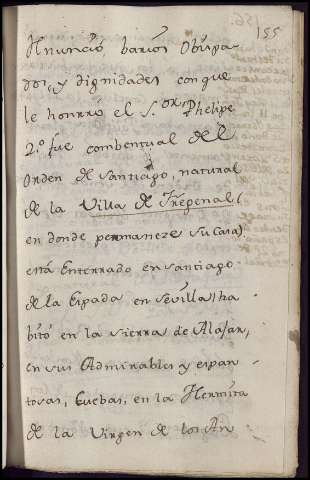 155
Renunció barios Obispa
dos, y dignidades con que
le honrró el S.or Phelipe
2.º fue combentual del
Orden de Santiago, natural
de la Villa de Frègenal (
en donde permaneze su Casa)
está Enterrado en Santiago
de la Espada en Sevilla, ha
bitó en la sierra de Alajar,
en sus Admirables y espan
tosas, Cuebas, en la Hermita
de la Virgen de los An